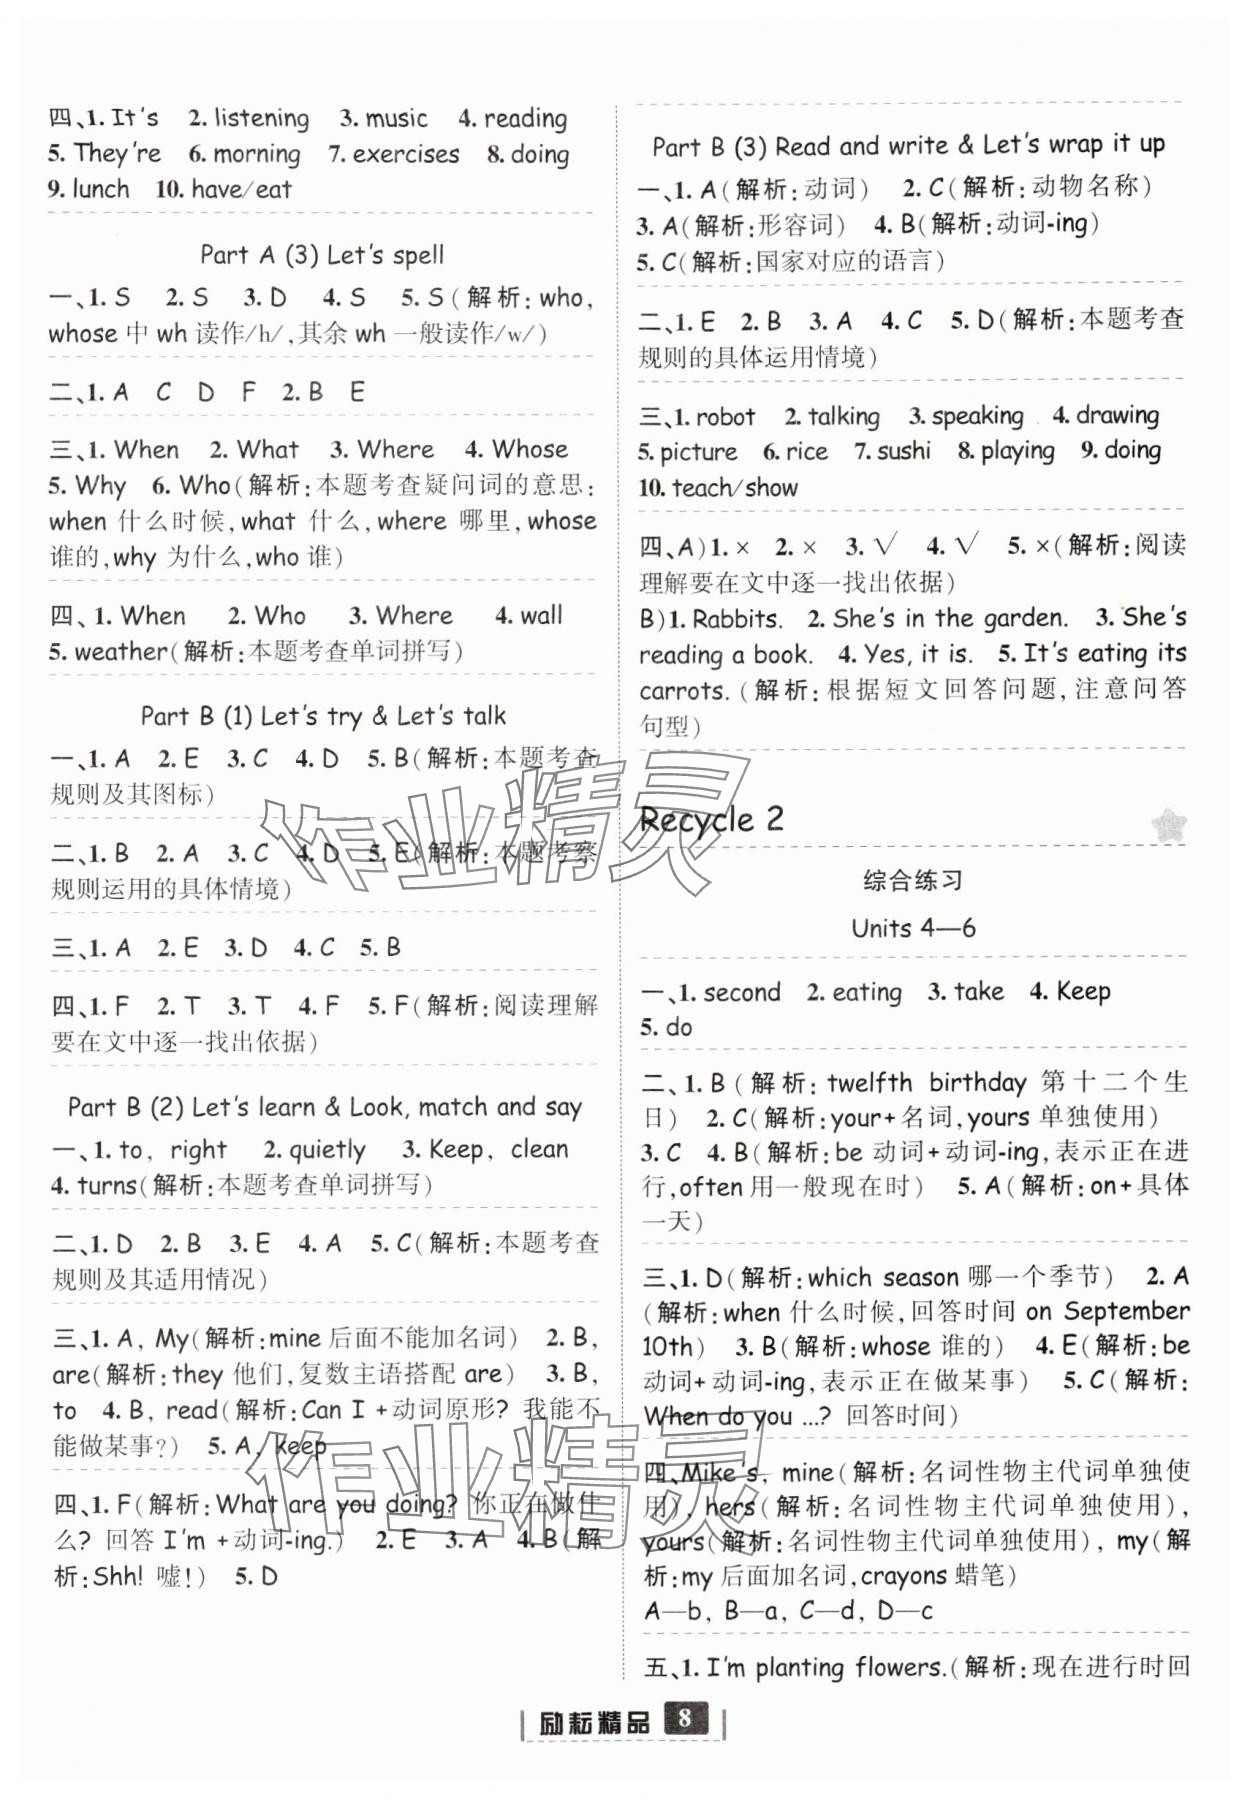 四、1. It's 2. listening 3. music 4. reading
5. They're 6. morning 7. exercises 8. doing
9. lunch 10. have/eat
Part A (3) Let's spell
一、1. S 2. S 3. D 4. S 5. S(解析:who,
whose 中 wh 读作/h/,其余 wh 一般读作/w/)
二、1. A C D F 2. B E
三、1. When 2. What 3. Where 4. Whose
5. Why 6. Who(解析:本题考查疑问词的意思:
when 什么时候,what 什么,where 哪里,whose
谁的,why 为什么,who 谁)
四、1. When 2. Who 3. Where 4. wall
5. weather(解析:本题考查单词拼写)
Part B (1) Let's try & Let's talk
一、1. A 2. E 3. C 4. D 5. B(解析:本题考查
规则及其图标)
二、1. B 2. A 3. C 4. D 5. E(解析:本题考察
规则运用的具体情境)
三、1. A 2. E 3. D 4. C 5. B
四、1. F 2. T 3. T 4. F 5. F(解析:阅读理解
要在文中逐一找出依据)
Part B (2) Let's learn & Look, match and say
一、1. to, right 2. quietly 3. Keep, clean
4. turns(解析:本题考查单词拼写)
二、1. D 2. B 3. E 4. A 5. C(解析:本题考查
规则及其适用情况)
三、1. A, My(解析:mine 后面不能加名词) 2. B,
are(解析:they 他们,复数主语搭配 are) 3. B,
to 4. B, read(解析:Can I +动词原形? 我能不
能做某事?) 5. A, keep
四、1. F(解析:What are you doing? 你正在做什
么? 回答 I'm +动词-ing.) 2. E 3. A 4. B(解
析:Shh! 嘘!) 5. D
Part B (3) Read and write & Let's wrap it up
一、1. A(解析:动词) 2. C(解析:动物名称)
3. A(解析:形容词) 4. B(解析:动词-ing)
5. C(解析:国家对应的语言)
二、1. E 2. B 3. A 4. C 5. D(解析:本题考查
规则的具体运用情境)
三、1. robot 2. talking 3. speaking 4. drawing
5. picture 6. rice 7. sushi 8. playing 9. doing
10. teach/show
四、A)1. × 2. × 3. √ 4. √ 5. ×(解析:阅读
理解要在文中逐一找出依据)
B)1. Rabbits. 2. She's in the garden. 3. She's
reading a book. 4. Yes, it is. 5. It's eating its
carrots. (解析:根据短文回答问题,注意问答
句型)
Recycle 2
综合练习
Units 4—6
一、1. second 2. eating 3. take 4. Keep
5. do
二、1. B(解析: twelfth birthday 第十二个生
日) 2. C(解析:your+名词,yours 单独使用)
3. C 4. B(解析:be 动词+动词-ing,表示正在进
行,often 用一般现在时) 5. A(解析:on+具体
一天)
三、1. D(解析:which season 哪一个季节) 2. A
(解析:when 什么时候,回答时间 on September
10th) 3. B(解析:whose 谁的) 4. E(解析:be
动词+动词-ing,表示正在做某事) 5. C(解析:
When do you ...? 回答时间)
四、Mike's, mine(解析:名词性物主代词单独使
用), hers(解析:名词性物主代词单独使用),
yours(解析:名词性物主代词单独使用), my(解
析:my 后面加名词,crayons 蜡笔)
A—b, B—a, C—d, D—c
五、1. I'm planting flowers.(解析:现在进行时回
励耘精品 8
作业精灵
作业精灵